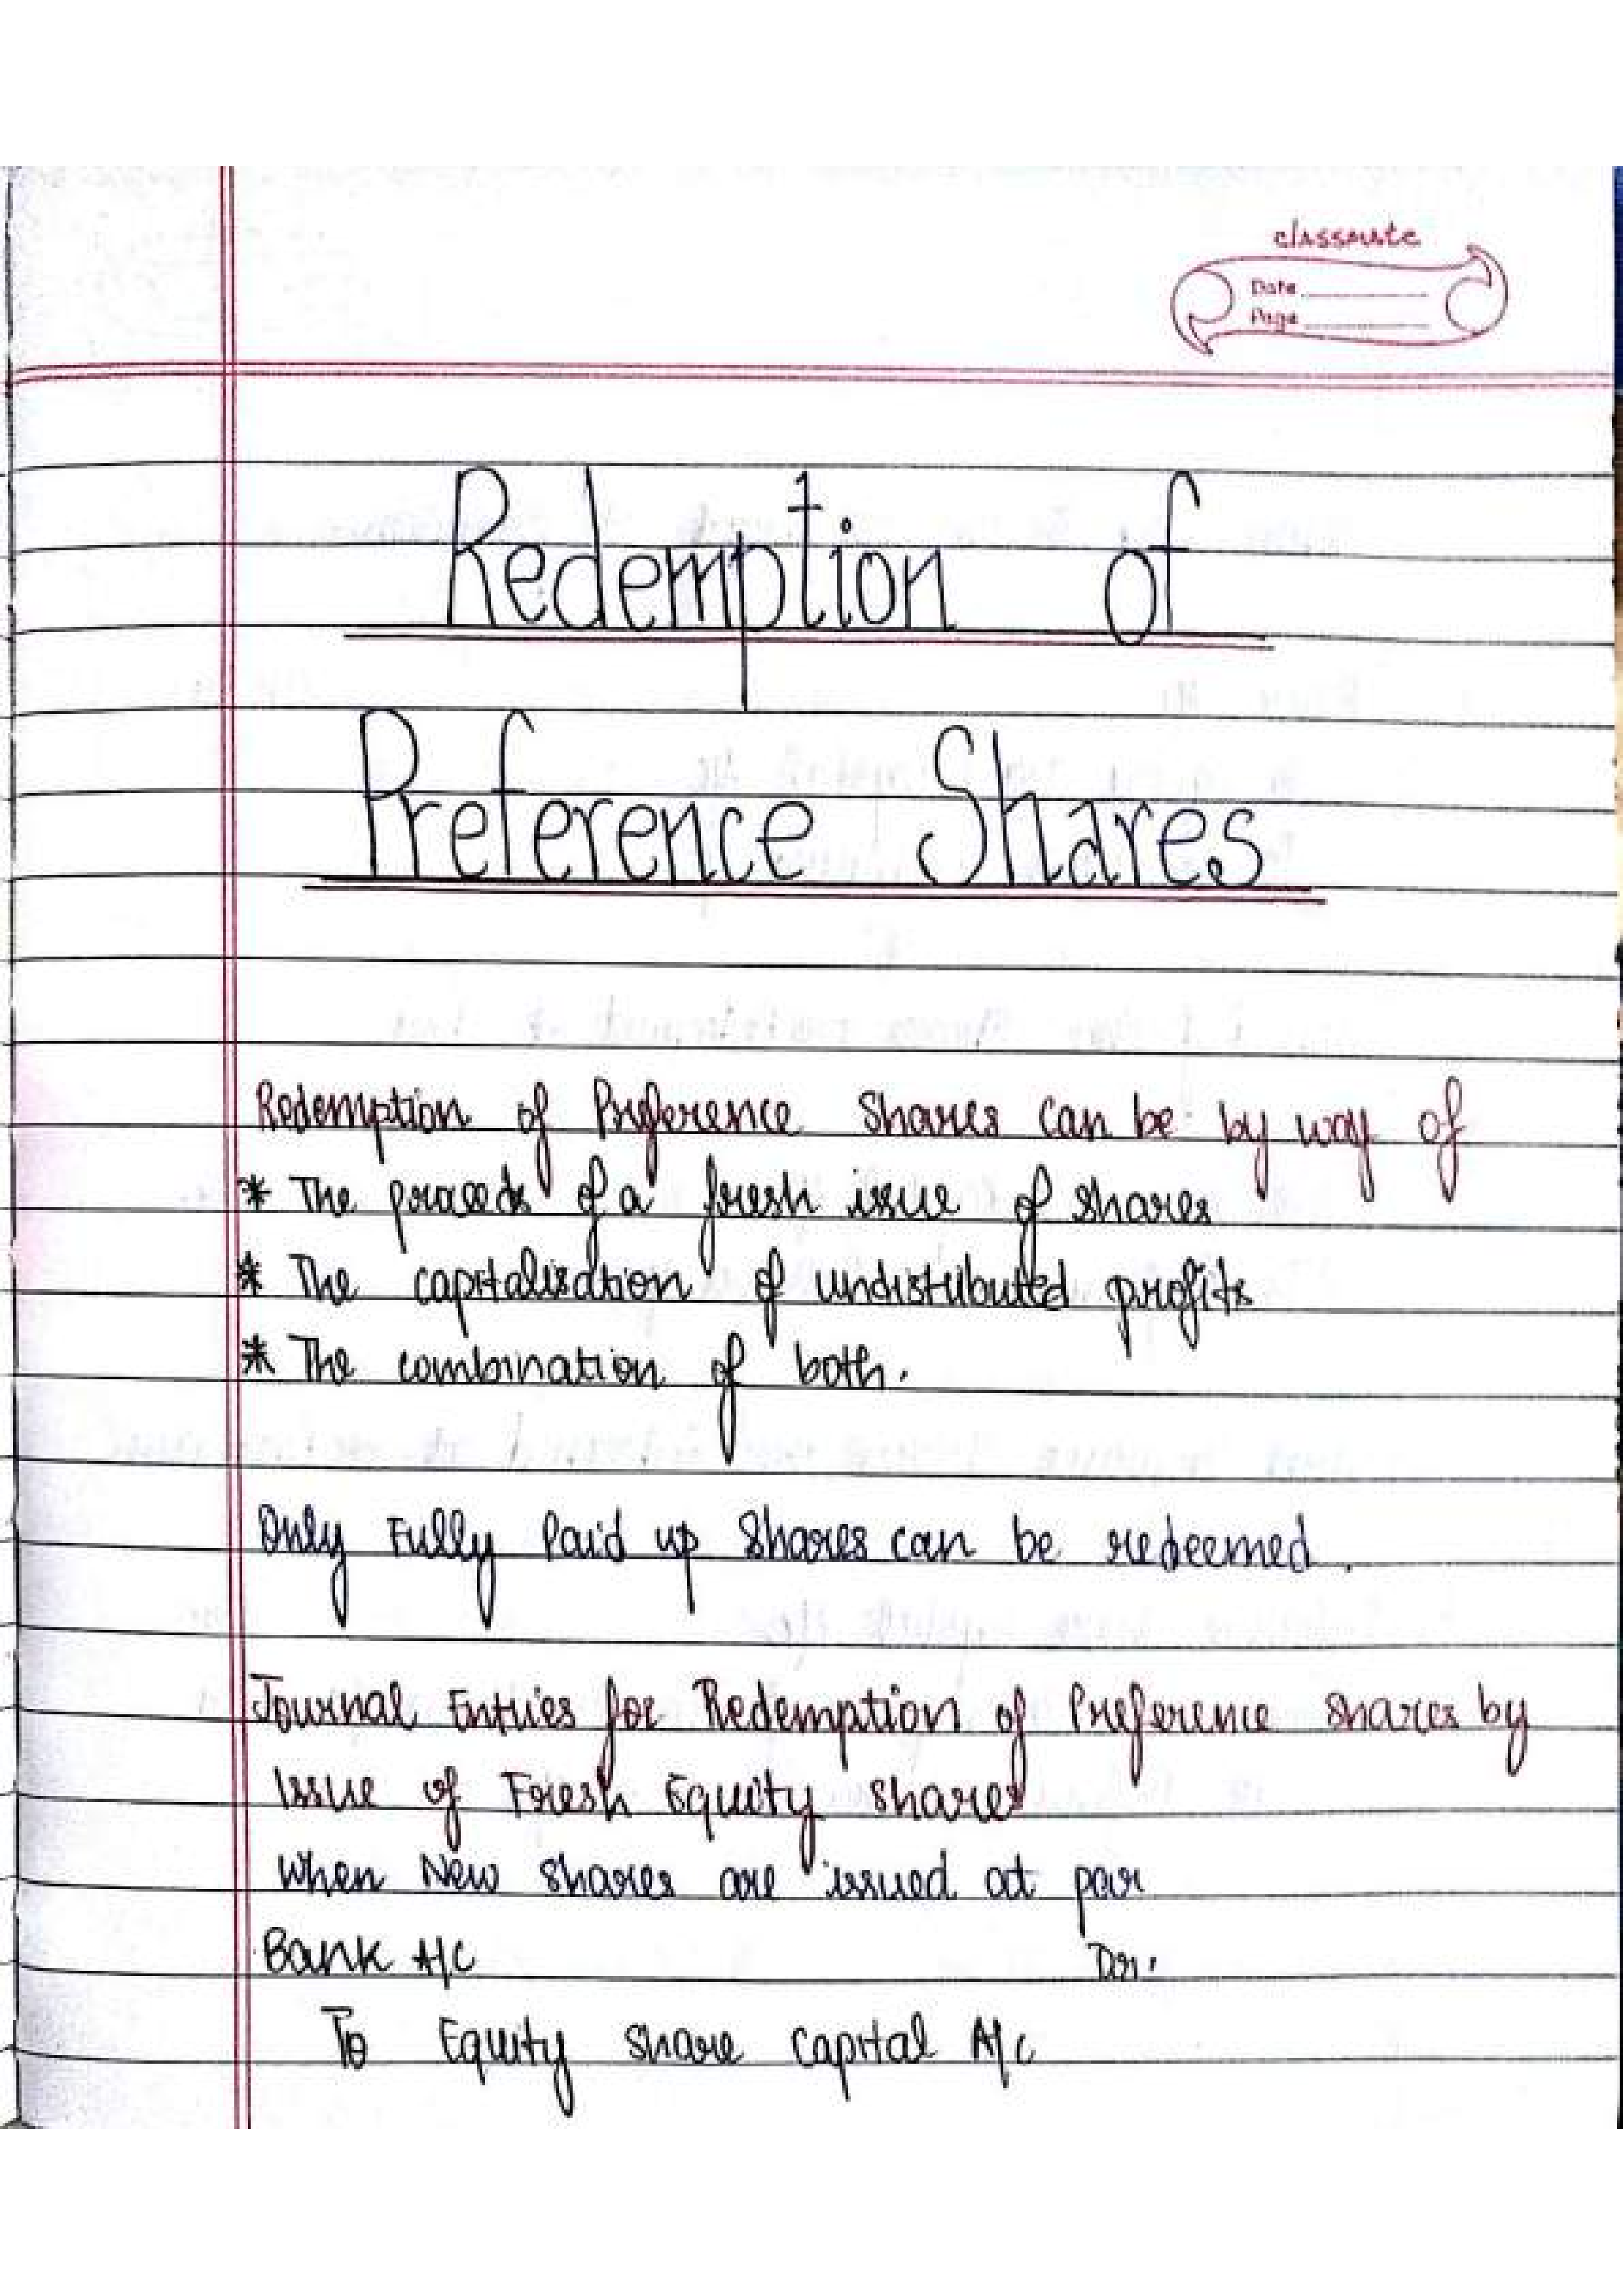 classmate
Date
Page
Redemption of
Preference Shares
Redemption of Preference Shares can be by way of
* The proceeds of a fresh issue of shares
* The capitalisation of undistributed profits
* The combination of both.
Only Fully Paid up Shares can be redeemed.
Journal Entries for Redemption of Preference Shares by
Issue of Fresh Equity shares
When New shares are issued at par
Bank A/c Dr.
To Equity share capital A/c